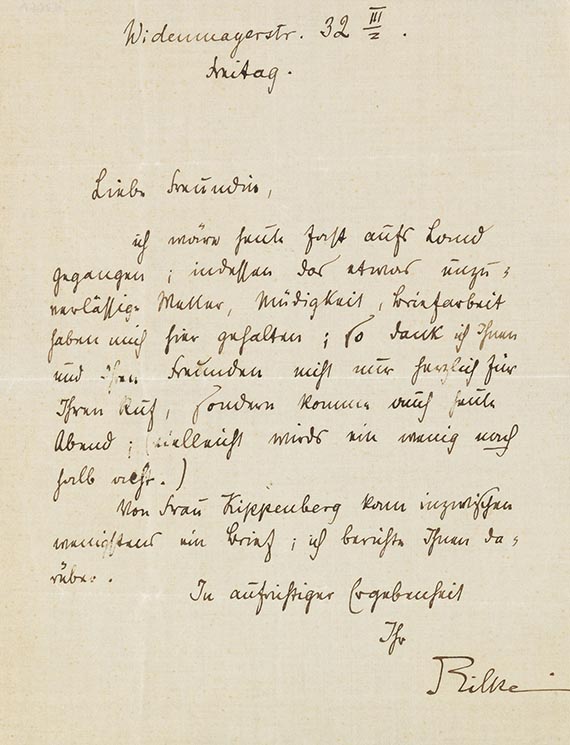 Widenmayerstr. 32 III/2.
Freitag.
Liebe Freundin,
ich wäre heute fast aufs Land
gegangen; indessen das etwas unzu-
verlässige Wetter, Müdigkeit, Briefarbeit
haben mich hier gehalten; so dank ich Ihnen
und Ihren Freunden nicht nur herzlich für
Ihren Ruf, sondern komme auch heute
Abend; (vielleicht wirds ein wenig nach
halb acht.)
Von Frau Kippenberg kam inzwischen
wenigstens ein Brief; ich berichte Ihnen da-
rüber.
In aufrichtiger Ergebenheit
Ihr
Rilke